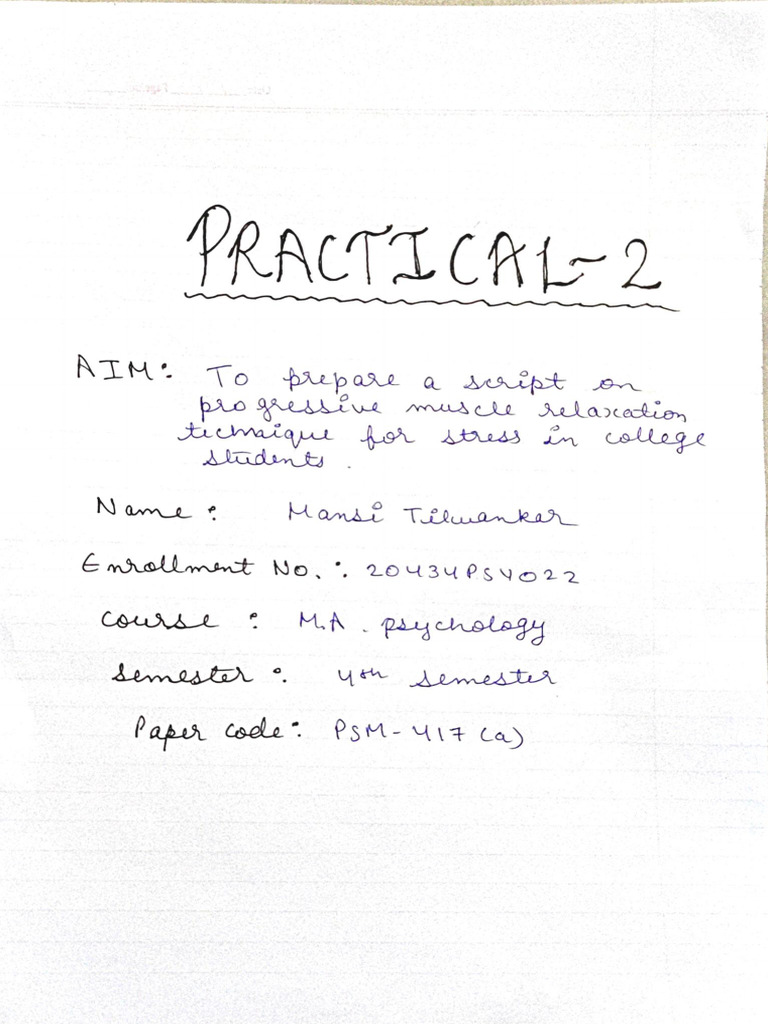 PRACTICAL-2
AIM: To prepare a script on
progressive muscle relaxation
technique for stress in college
students.
Name: Mansi Tilwankar
Enrollment No.: 20434PSY022
course: M.A. psychology
Semester: 4th semester
Paper code: PSM-417 (a)